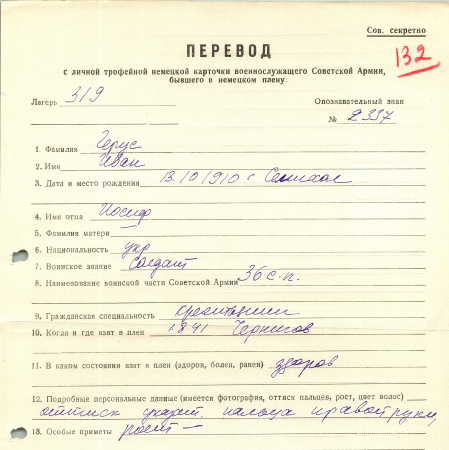 Сов. секретно
132
ПЕРЕВОД
с личной трофейной немецкой карточки военнослужащего Советской Армии,
бывшего в немецком плену.
Лагерь 319
Опознавательный знак
№ 2337
1. Фамилия Герус
2. Имя Иван
3. Дата и место рождения 13.10.1910 с
4. Имя отца Иосиф
5. Фамилия матери —
6. Национальность укр
7. Воинское звание Солдат
8. Наименование воинской части Советской Армии 36 с.п.
9. Гражданская специальность
10. Когда и где взят в плен 1941 Чернигов
11. В каком состоянии взят в плен (здоров, болен, ранен) здоров
12. Подробные персональные данные (имеется фотография, оттиск пальцев, рост, цвет волос)
оттиск указат. пальца правой руки,
13. Особые приметы рост —